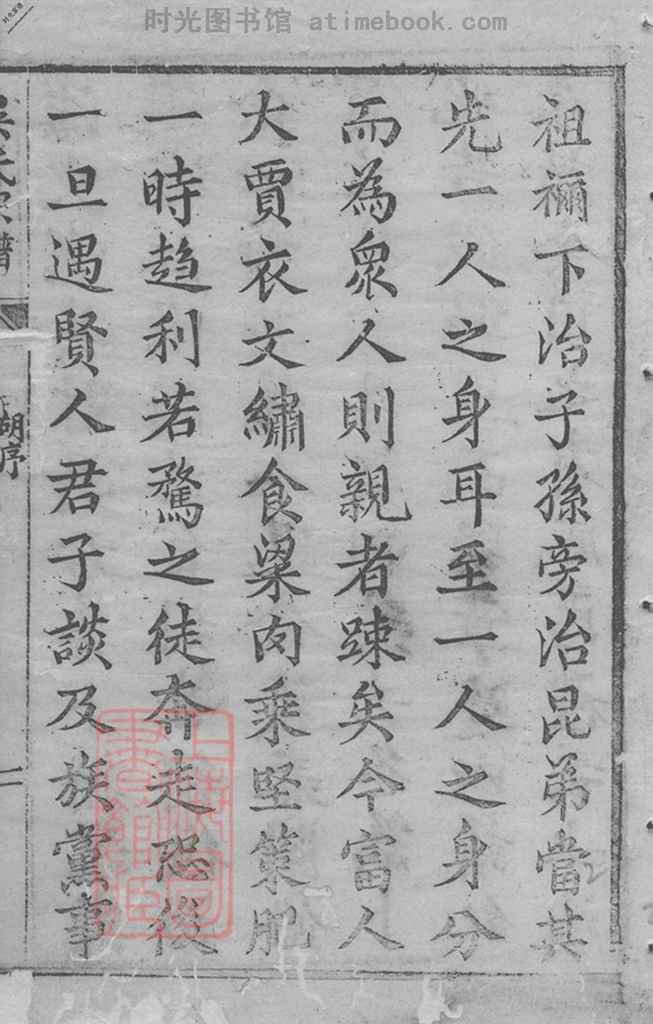 时光图书馆 atimebook.com
祖禰下治子孫旁治昆弟當其
先一人之身耳至一人之身分
而為衆人則親者踈矣今富人
大賈衣文繡食粱肉乘堅策肥
一時趋利若鶩之徒奔走恐後
一旦遇賢人君子談及族黨事
氏宗譜
胡序
二